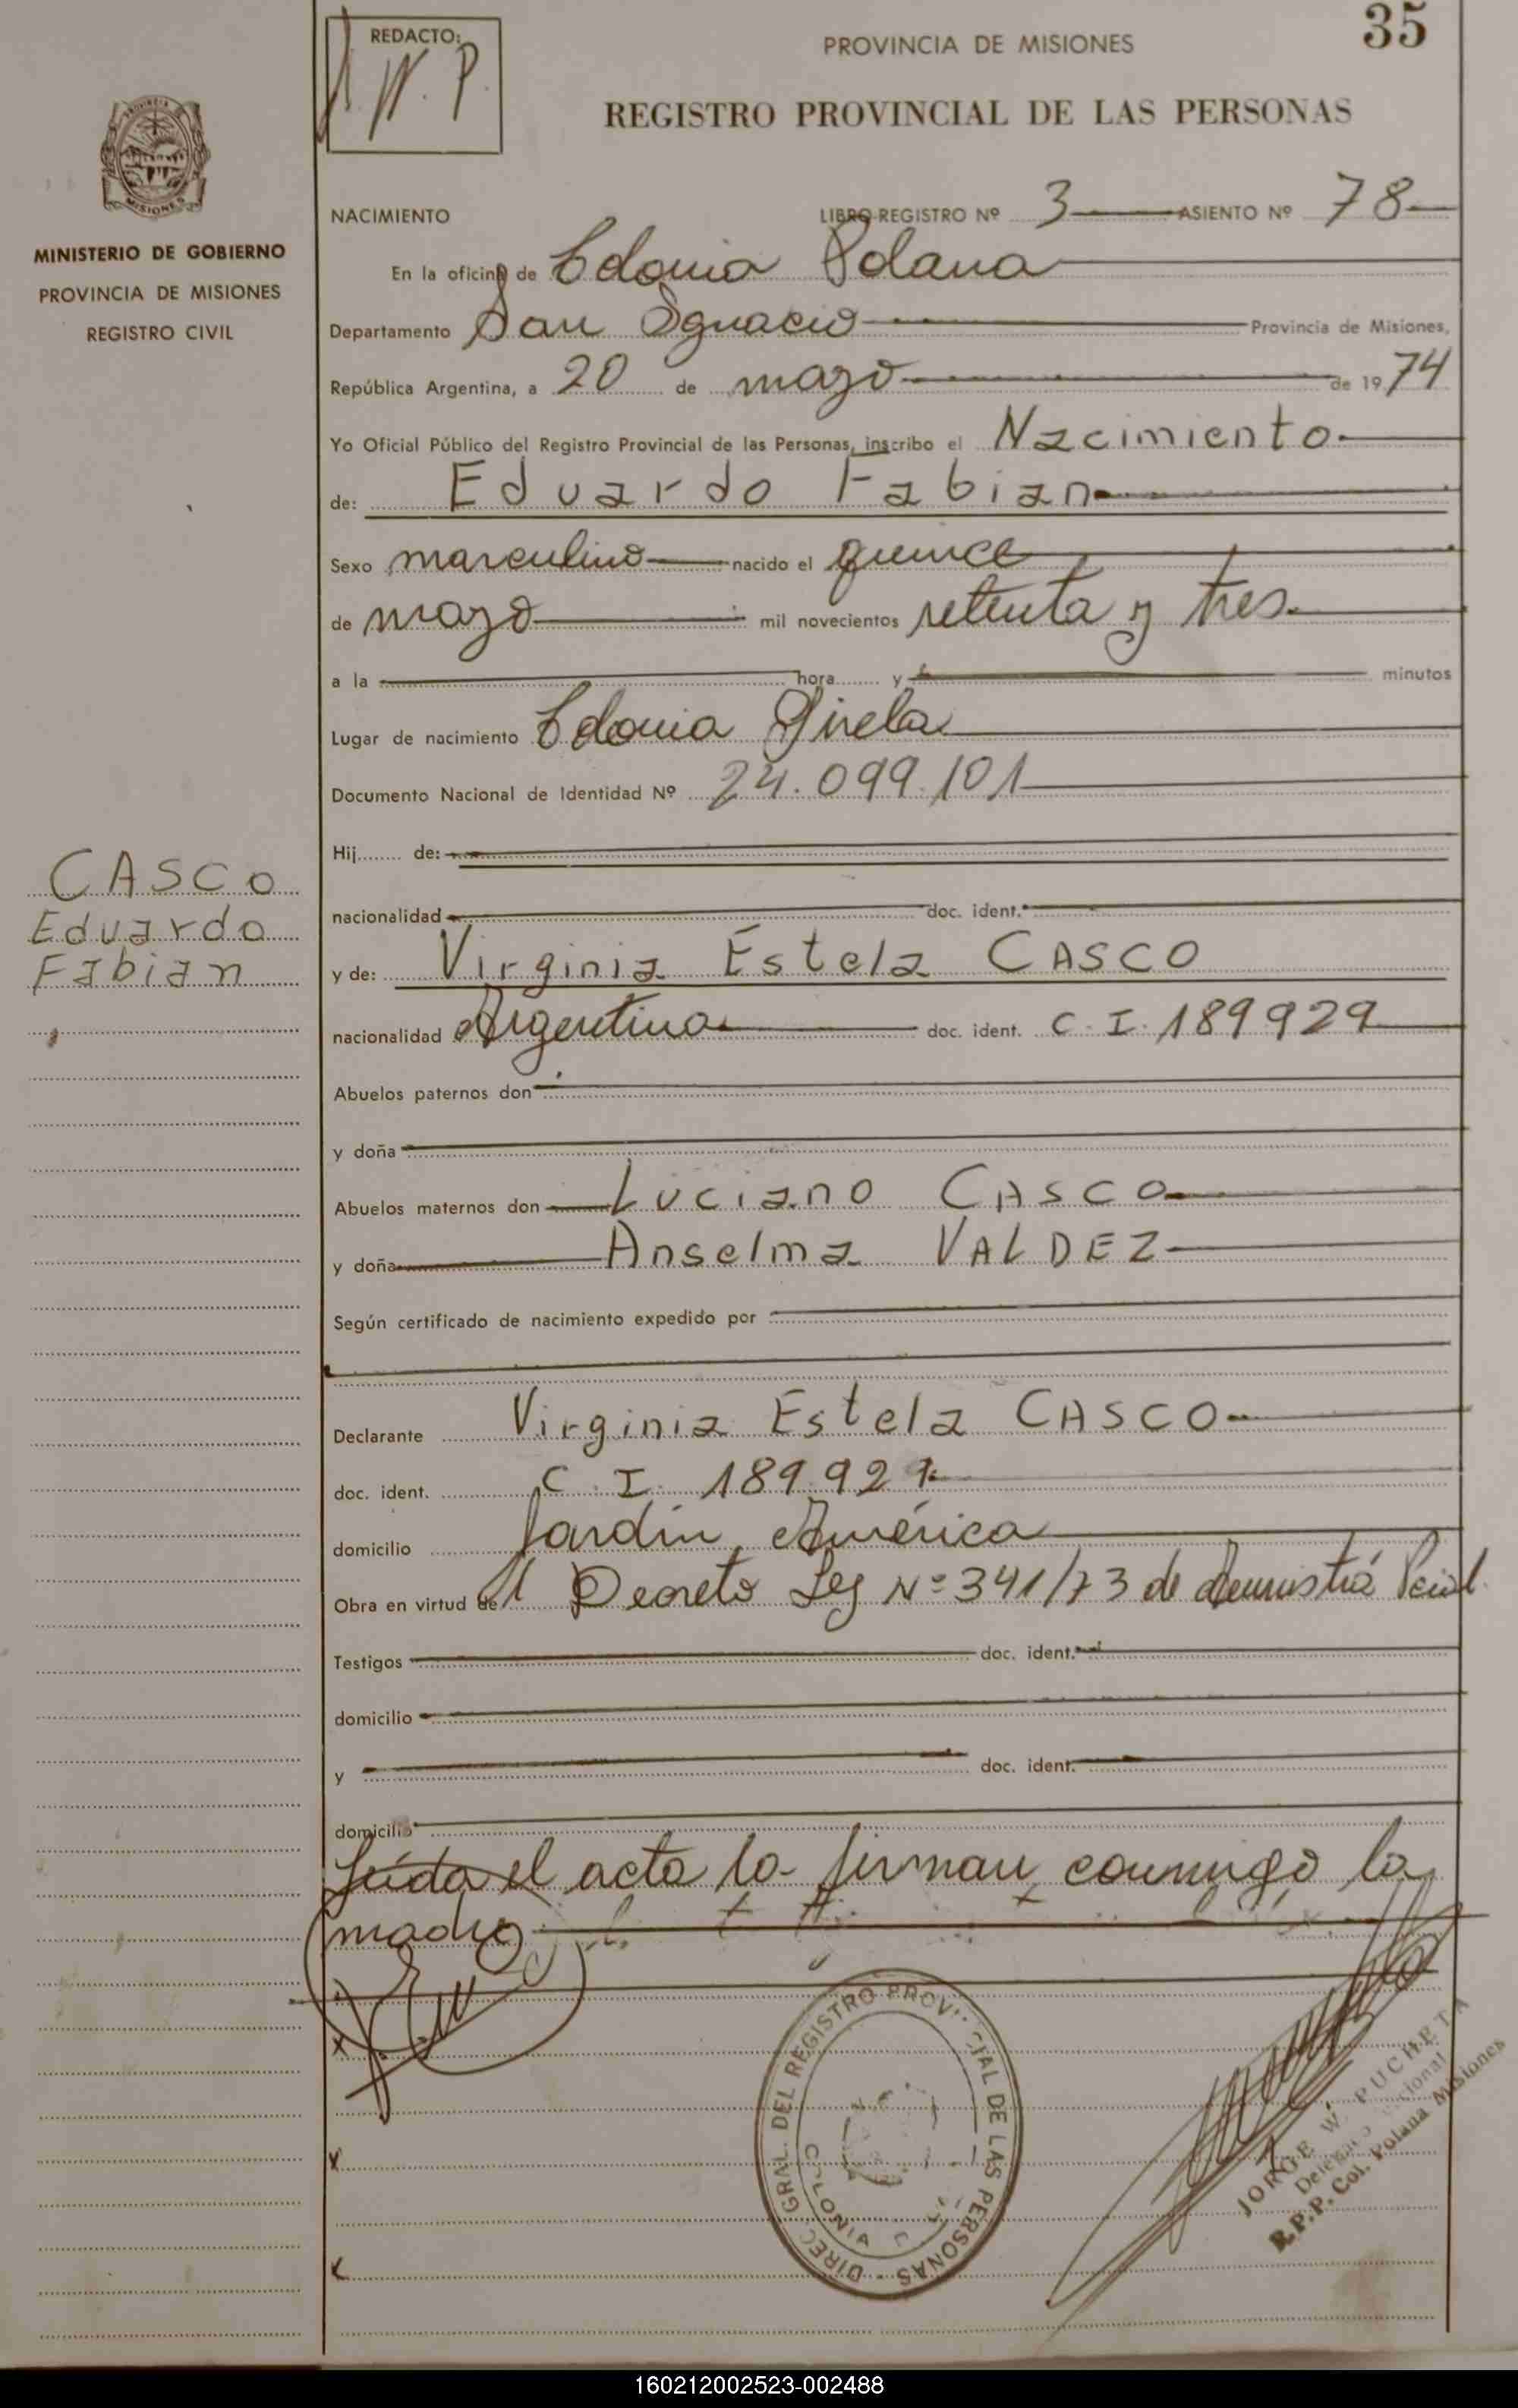 35
REDACTO:
W. P.
PROVINCIA DE MISIONES
REGISTRO PROVINCIAL DE LAS PERSONAS
MISIONES
MINISTERIO DE GOBIERNO
PROVINCIA DE MISIONES
REGISTRO CIVIL
NACIMIENTO LIBRO REGISTRO Nº 3 ASIENTO Nº 78
En la oficina de Colonia Polana
Departamento San Ignacio Provincia de Misiones,
República Argentina, a 20 de mayo de 1974
Yo Oficial Público del Registro Provincial de las Personas, inscribo el Nacimiento
de: Eduardo Fabian
Sexo masculino nacido el quince
de mayo mil novecientos setenta y tres.
a la hora y minutos
Lugar de nacimiento Colonia
Documento Nacional de Identidad Nº 24.099.101
Hij........ de:
CASCO
Eduardo
Fabian
nacionalidad doc. ident.
y de: Virginia Estela CASCO
nacionalidad Argentina doc. ident. C. I. 189929
Abuelos paternos don
y doña
Abuelos maternos don Luciano CASCO
y doña Anselma VALDEZ
Según certificado de nacimiento expedido por
Declarante Virginia Estela CASCO
doc. ident. C. I. 189.929.
domicilio Jardín América
Obra en virtud del Decreto Ley Nº 341/73 de
Testigos doc. ident.
domicilio
y doc. ident.
domicilio
Leída el acta la firman conmigo la
madre
DIREC. GRAL. DEL REGISTRO PROVINCIAL DE LAS PERSONAS
COLONIA
JORGE W. PUCHETA
R.P.P. Col. Polana Misiones
160212002523-002488